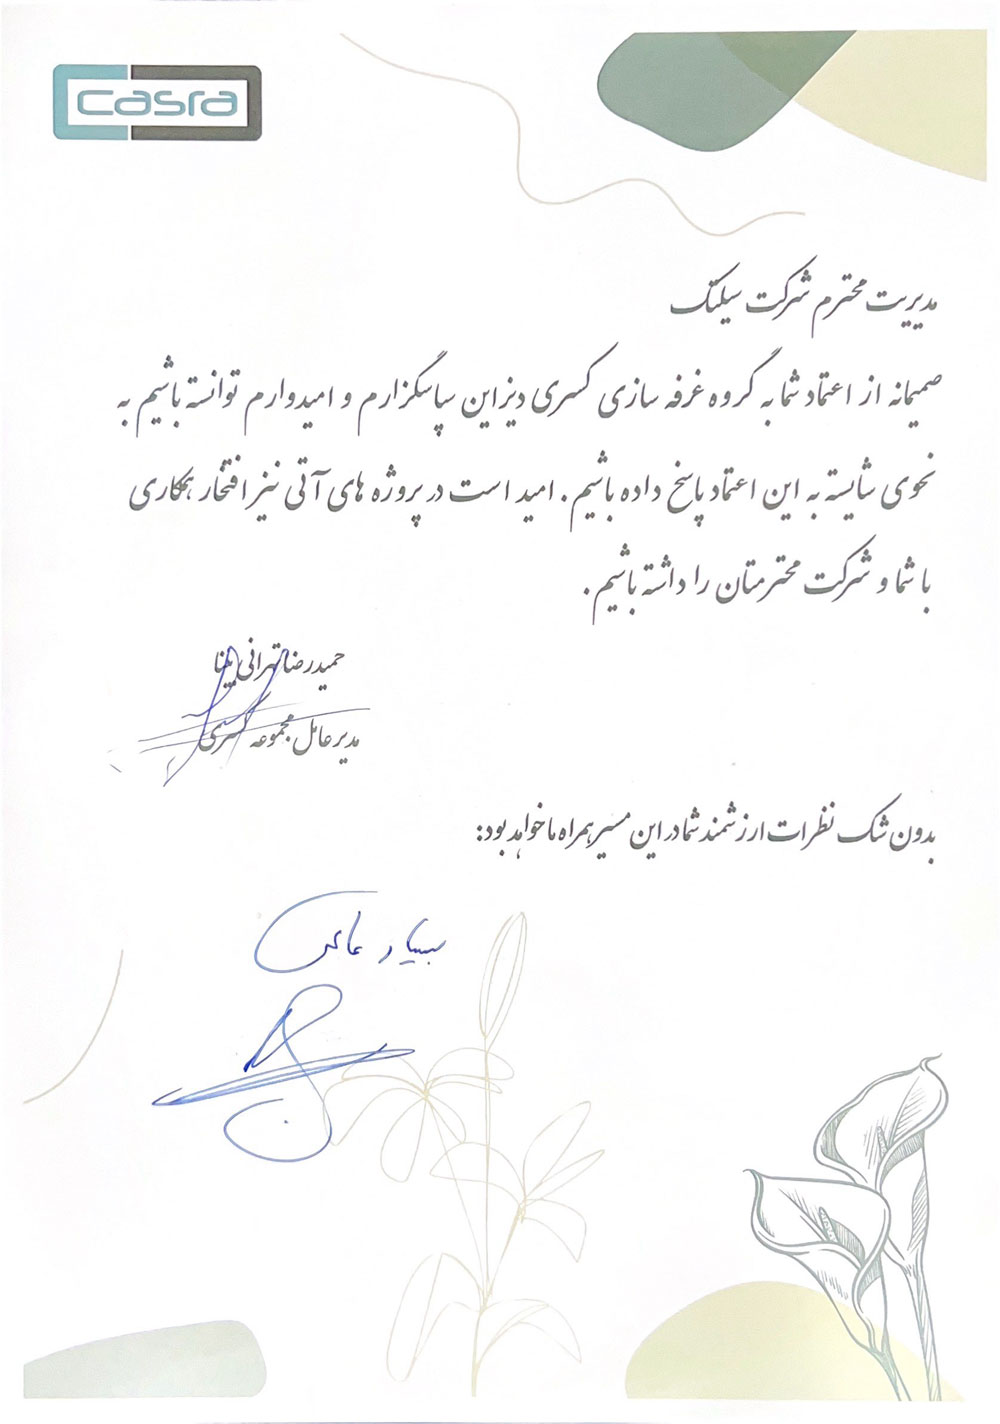 casra
مدیریت محترم شرکت سیلتک
صمیمانه از اعتماد شما به گروه غرفه سازی کسری دیزاین سپاسگزارم و امیدوارم توانسته باشیم به
نحوی شایسته به این اعتماد پاسخ داده باشیم. امید است در پروژه های آتی نیز افتخار همکاری
با شما و شرکت محترمتان را داشته باشیم.
حمیدرضا تهرانی یکتا
مدیرعامل مجموعه کسری
بدون شک نظرات ارزشمند شما در این مسیر همراه ما خواهد بود:
بسیار عالی